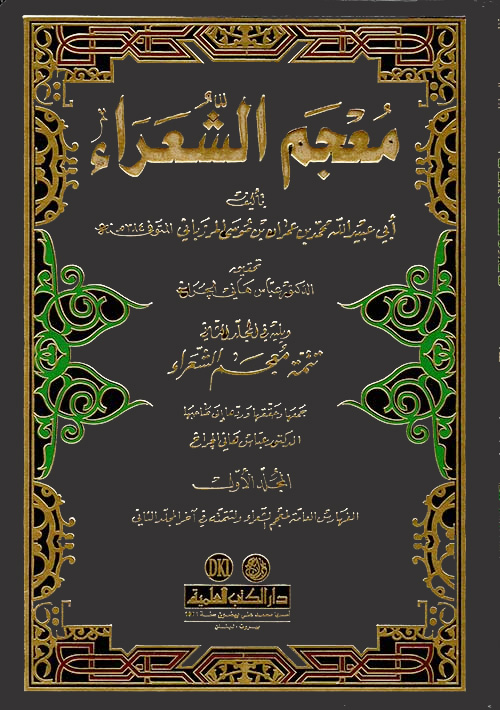 مُعْجَم الشُّعَرَاء
تأليف
أبي عبيد الله محمد بن عمران بن موسى المرزباني المتوفى ٣٨٤ هـ
تحقيق
الدكتور عباس هاني الچراخ
ويليه في المجلد الثاني
تتمّة مُعجم الشّعراء
جمعها وحققها وردها إلى مظانها
الدكتور عباس هاني الچراخ
المُجَلّد الأوّل
الفهارس العامة لمعجم الشعراء ولتتمته في آخر المجلد الثاني
DKI
دار الكتب العلمية
أسسها محمد علي بيضون سنة 1971
بيروت - لبنان